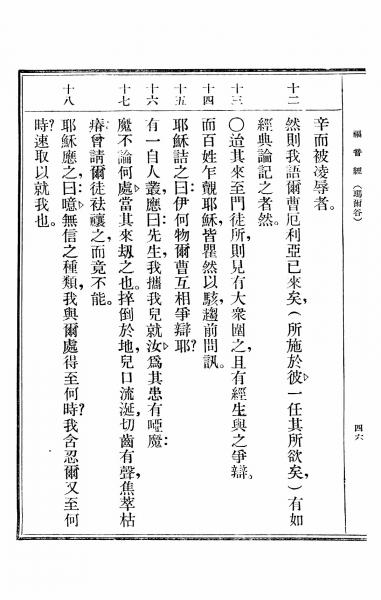 福音經(瑪爾谷) 四六
辛而被凌辱者。
十二 然則我語爾曹厄利亞已來矣,(所施於彼一任其所欲矣)有如
經典論記之者然。
十三 〇迨其來至門徒所,則見有大衆圍之,且有經生與之爭辯。
十四 而百姓乍覩耶穌,皆瞿然以駭,趨前問訊。
十五 耶穌詰之曰:伊何物爾曹互相爭辯耶?
十六 有一自人叢應曰:先生,我攜我兒就汝,爲其患有啞魔:
十七 魔不論何處,當其來刼之也。捽倒於地,兒口流涎,切齒有聲,焦萃枯
瘠,曾請爾徒祛禳之,而竟不能。
十八 耶穌應之曰:噫,無信之種類,我與爾處得至何時?我含忍爾又至何
時?速取以就我也。